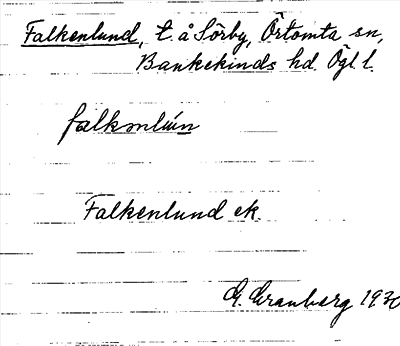 Falkenlund, t. å Sörby, Örtomta sn,
Bankekinds hd. Ögl l.
falkənlún
Falkenlund ek.
G. Granberg 1930